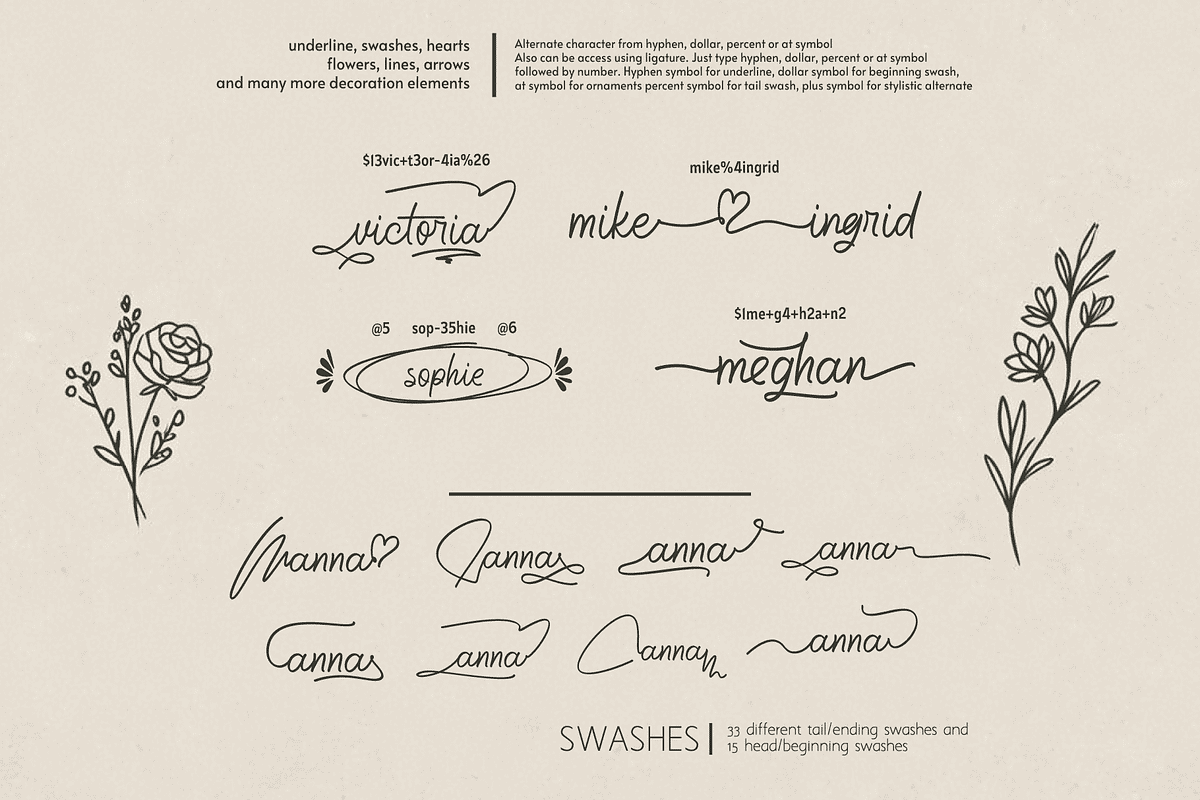 underline, swashes, hearts
flowers, lines, arrows
and many more decoration elements
Alternate character from hyphen, dollar, percent or at symbol
Also can be access using ligature. Just type hyphen, dollar, percent or at symbol
followed by number. Hyphen symbol for underline, dollar symbol for beginning swash,
at symbol for ornaments percent symbol for tail swash, plus symbol for stylistic alternate
$13vic+t3or-4ia%26
victoria
mike%4ingrid
mike ingrid
@5 sop-35hie @6
sophie
$1me+g4+h2a+n2
meghan
anna anna anna anna
anna anna anna anna
SWASHES
33 different tail/ending swashes and
15 head/beginning swashes